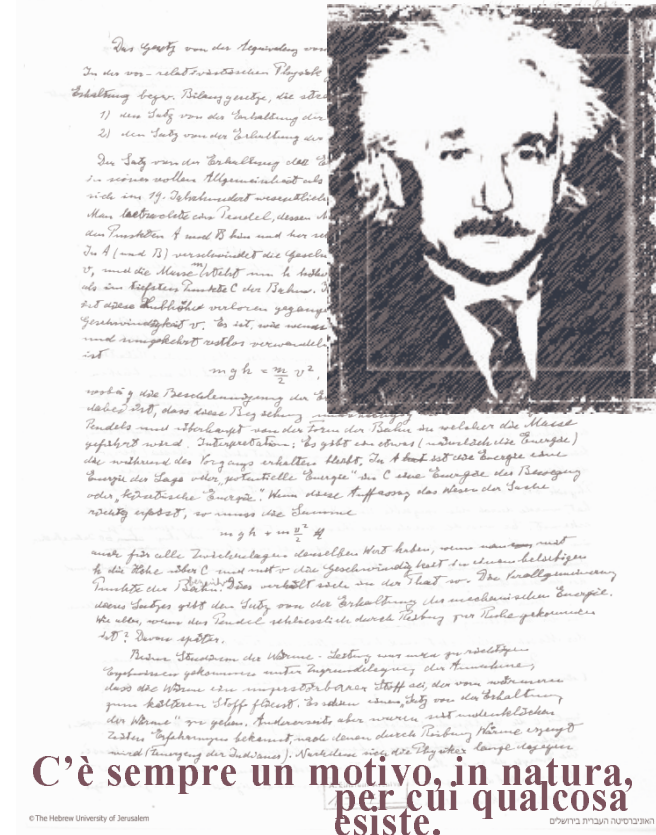 Das Gesetz von der Aequivalenz von
In der vor-relativistischen Physik
Erhaltung bezw. Bilanzgesetze, die
1) den Satz von der Erhaltung der
2) den Satz von der Erhaltung der
Der Satz von der Erhaltung der
in seiner vollen Allgemeinheit als
sich im 19. Jahrhundert wesentlich
Man betrachte ein Pendel, dessen
den Punkten A und B hin und her
In A (und B) verschwindet die
v, und die Masse m steht um h
als im tiefsten Punkte C der Bahn.
ist diese Hubhöhe verloren
Geschwindigkeit v. Es ist, wie wenn
und umgekehrt restlos
ist
m g h = m/2 v²,
die Beschleunigung der
dabei ist, dass diese Beziehung
Pendels und überhaupt von der Form der Bahn in welcher die Masse
geführt wird. Interpretation: Es gibt ein etwas (nämlich die Energie)
die während des Vorgangs erhalten bleibt. In A ist die Energie eine
Energie der Lage oder "potentielle Energie" in C eine Energie der Bewegung
oder "kinetische Energie". Wenn diese Auffassung das Wesen der Sache
richtig erfasst, so muss die Summe
m g h + m v²/2
auch für alle Zwischenlagen denselben Wert haben, wenn man mit
h die Höhe über C und mit v die Geschwindigkeit in einem beliebigen
Punkte der Bahn. Dies verhält sich in der That so. Die Verallgemeinerung
dieses Satzes gibt den Satz von der Erhaltung der mechanischen Energie.
Wie aber, wenn das Pendel schliesslich durch Reibung zur Ruhe gekommen
ist? Davon später.
Beim Studium der Wärme-Leitung war man zu richtigen
Ergebnissen gekommen unter Zugrundelegung der Annahme,
dass die Wärme ein unzerstörbarer Stoff sei, der vom wärmeren
zum kälteren Stoff fliesst. Es schien einen "Satz von der Erhaltung
der Wärme" zu geben. Andererseits aber waren seit undenklichen
Zeiten Erfahrungen bekannt, nach denen durch Reibung Wärme erzeugt
wird (Feuerzeug der Indianer). Nachdem sich die Physiker lange dagegen
C'è sempre un motivo, in natura,
per cui qualcosa
esiste.
© The Hebrew University of Jerusalem
האוניברסיטה העברית בירושלים